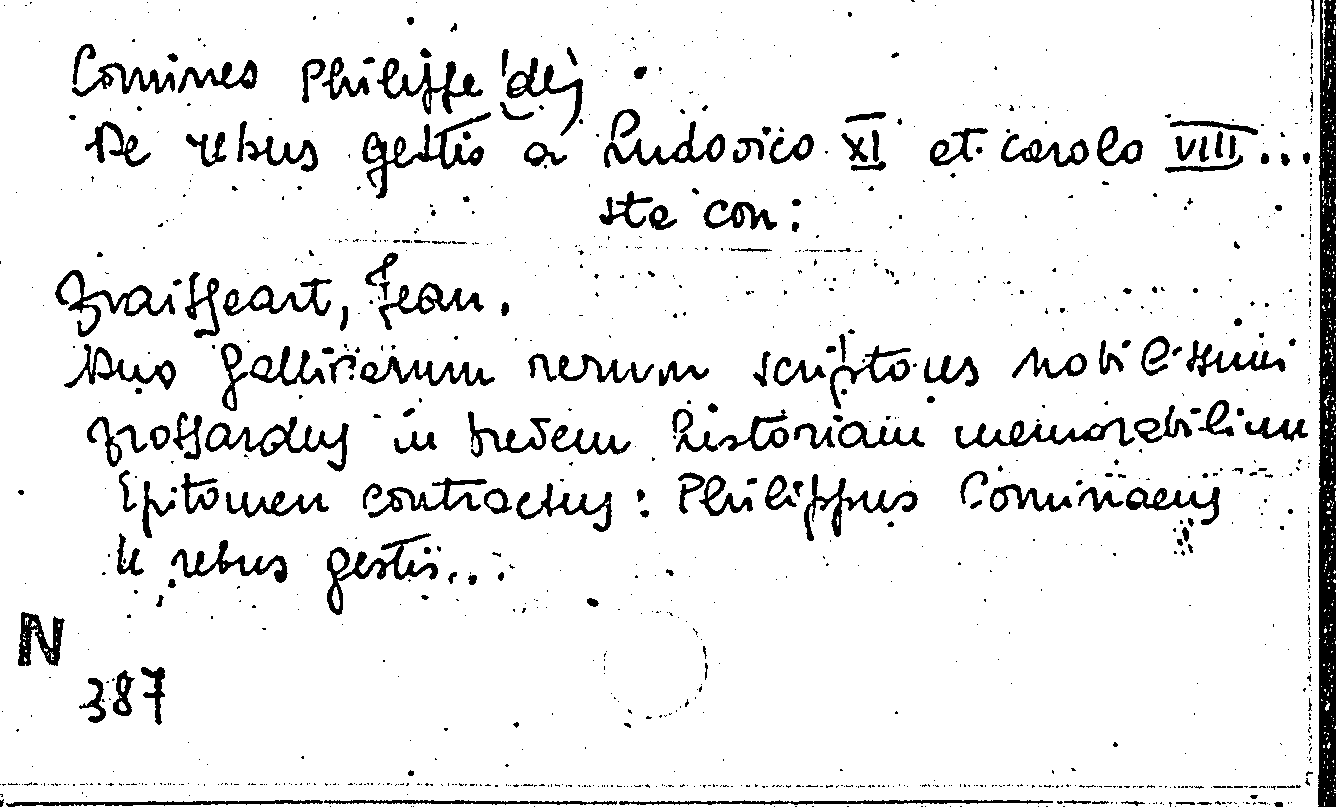 Comines Philippe (de)
De rebus gestis a Ludovico XI et Carolo VIII...
sta con:
Fraisseart, Jean.
Duo gallicarum rerum scriptores nobilissimi
frossardus in brevem historiam memorabilium
Epitomen contractus: Philippus Cominaeus
de rebus gestis...
N
387